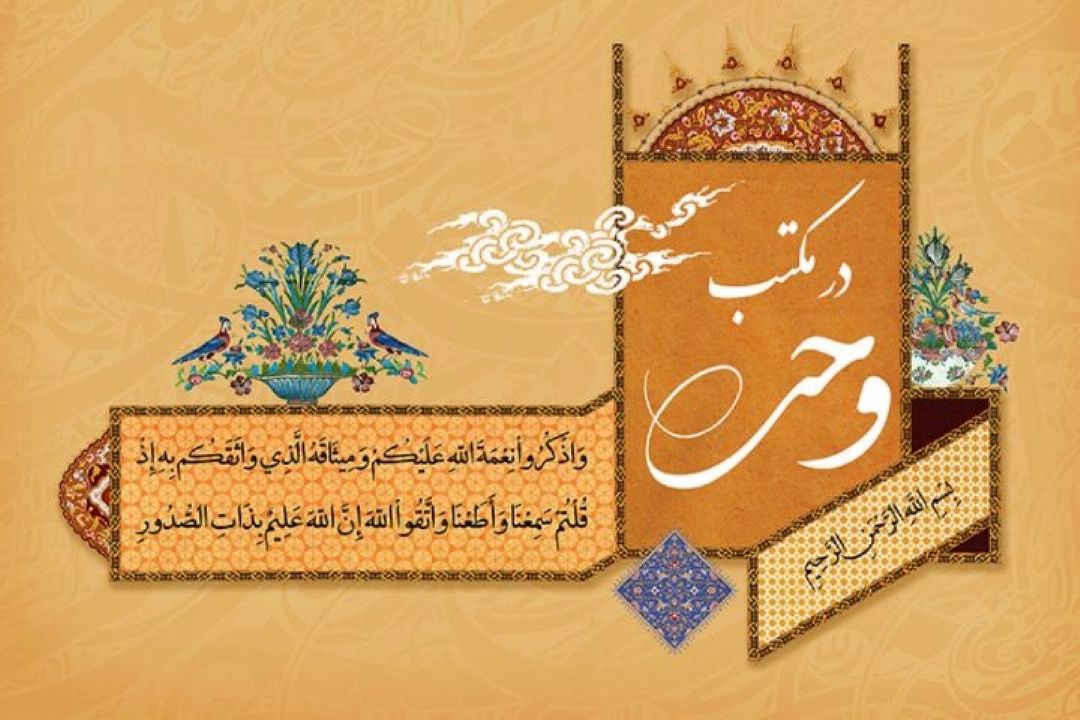 در مکتب
وحی
بِسْمِ اللَّهِ الرَّحْمَنِ الرَّحِيمِ
وَاذْكُرُواْ نِعْمَةَ اللّهِ عَلَيْكُمْ وَمِيثَاقَهُ الَّذِي وَاثَقَكُم بِهِ إِذْ
قُلْتُمْ سَمِعْنَا وَأَطَعْنَا وَاتَّقُواْ اللّهَ إِنَّ اللّهَ عَلِيمٌ بِذَاتِ الصُّدُورِ